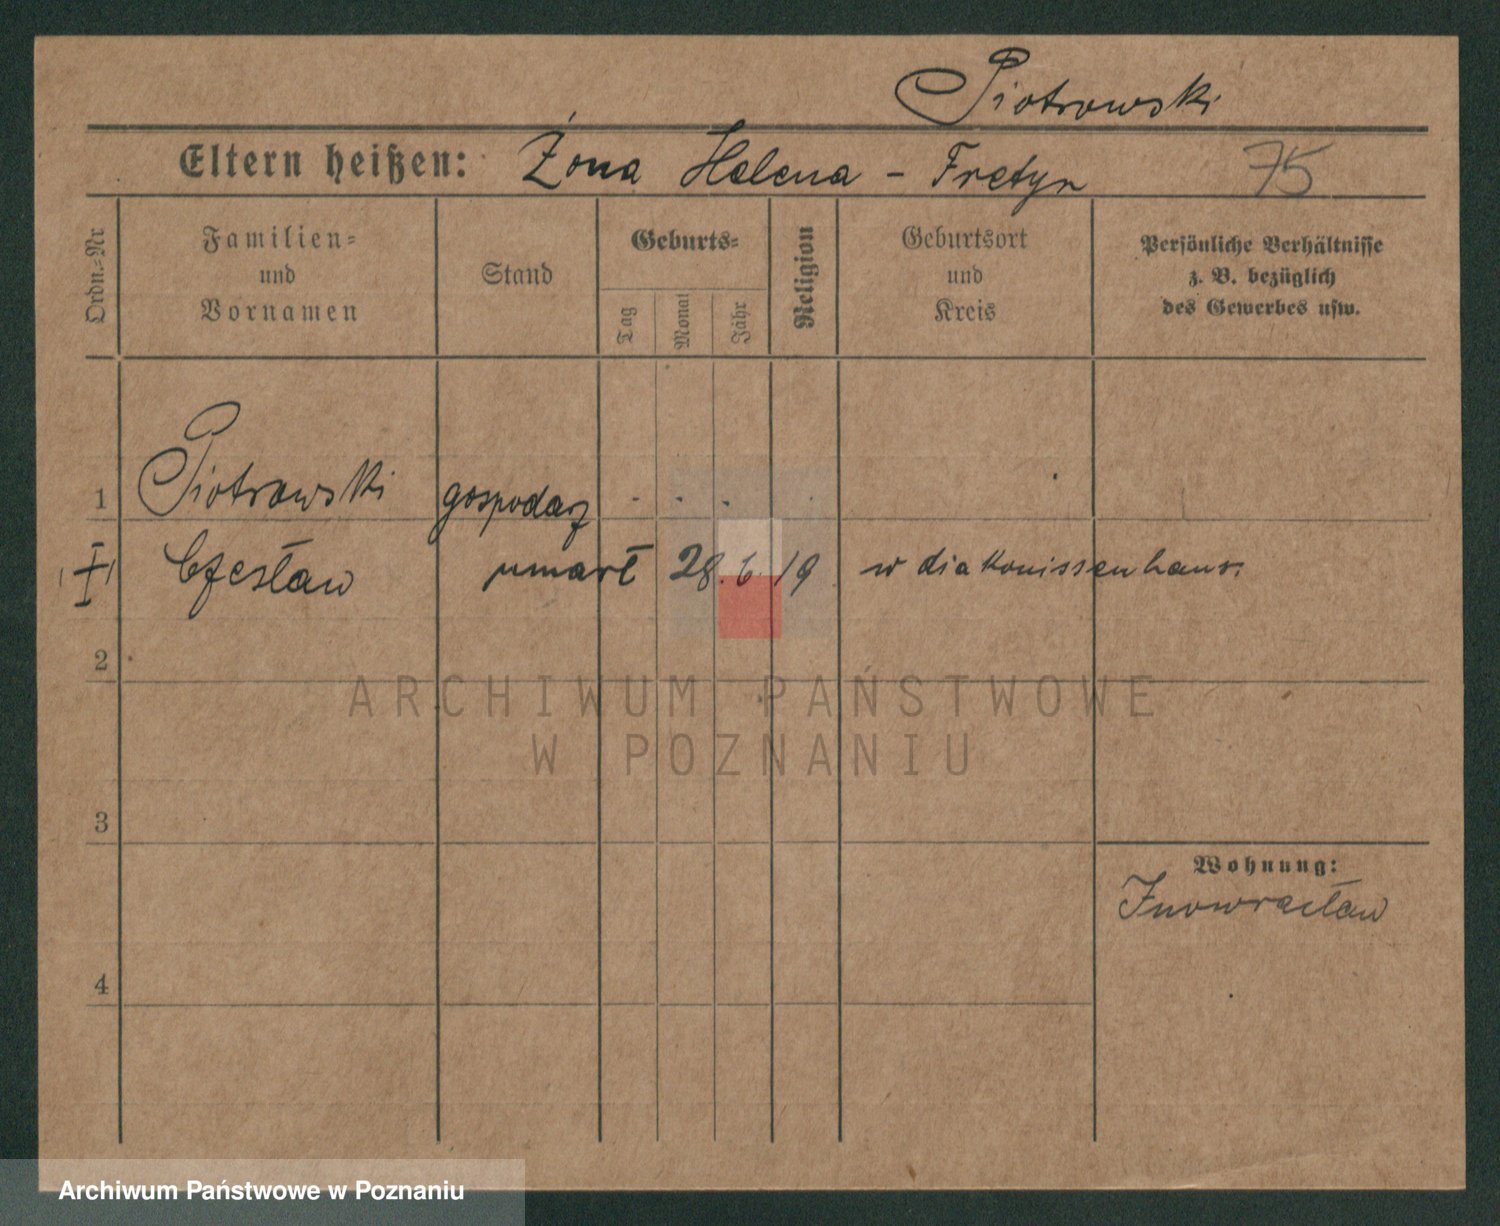 Piotrowski
Eltern heißen: Żona Helena - Fretyn 75
Ordn.-Nr
Familien-
und
Vornamen
Stand
Geburts-
Tag
Monat
Jahr
Religion
Geburtsort
und
Kreis
Persönliche Verhältnisse
z. B. bezüglich
des Gewerbes usw.
1 Piotrowski gospodarz
Czesław umarł 28.6.19 w diakonissenhaus.
2
ARCHIWUM PAŃSTWOWE
W POZNANIU
3
Wohnung:
Inowracław
4
Archiwum Państwowe w Poznaniu